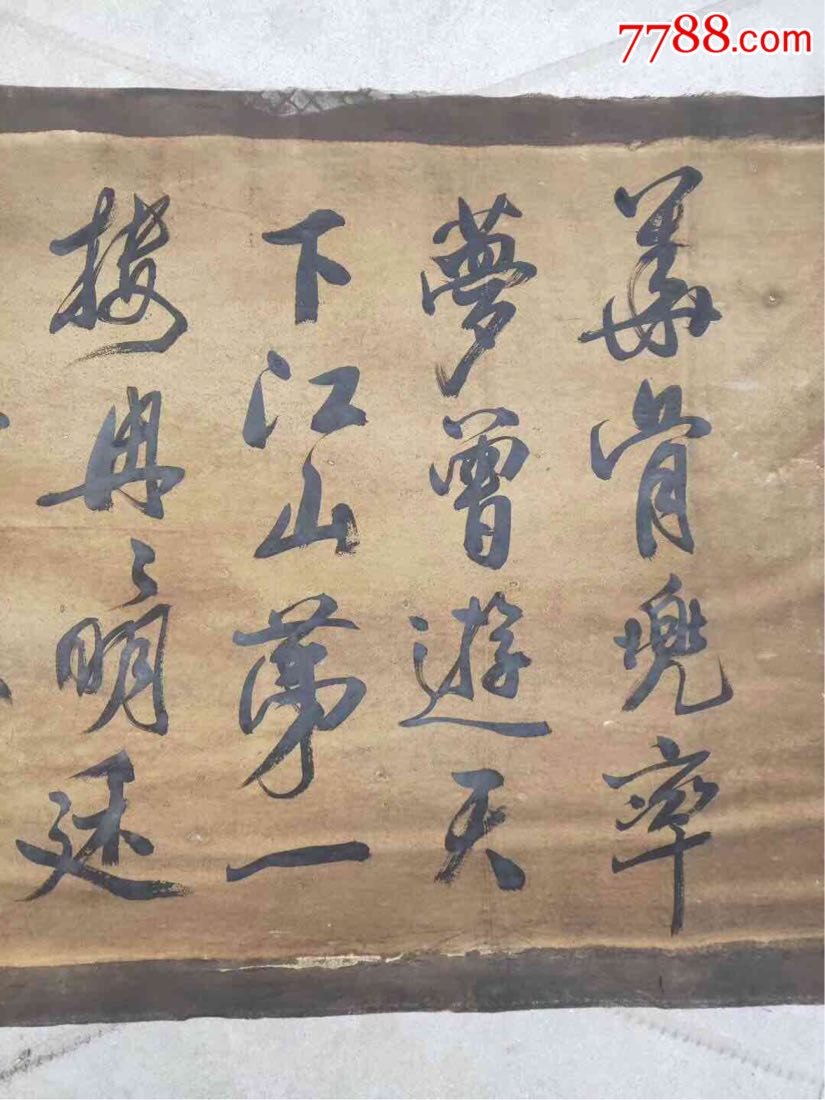 7788.com
華胥兜率
夢曾遊天
下江山第一
樓冉々明廷